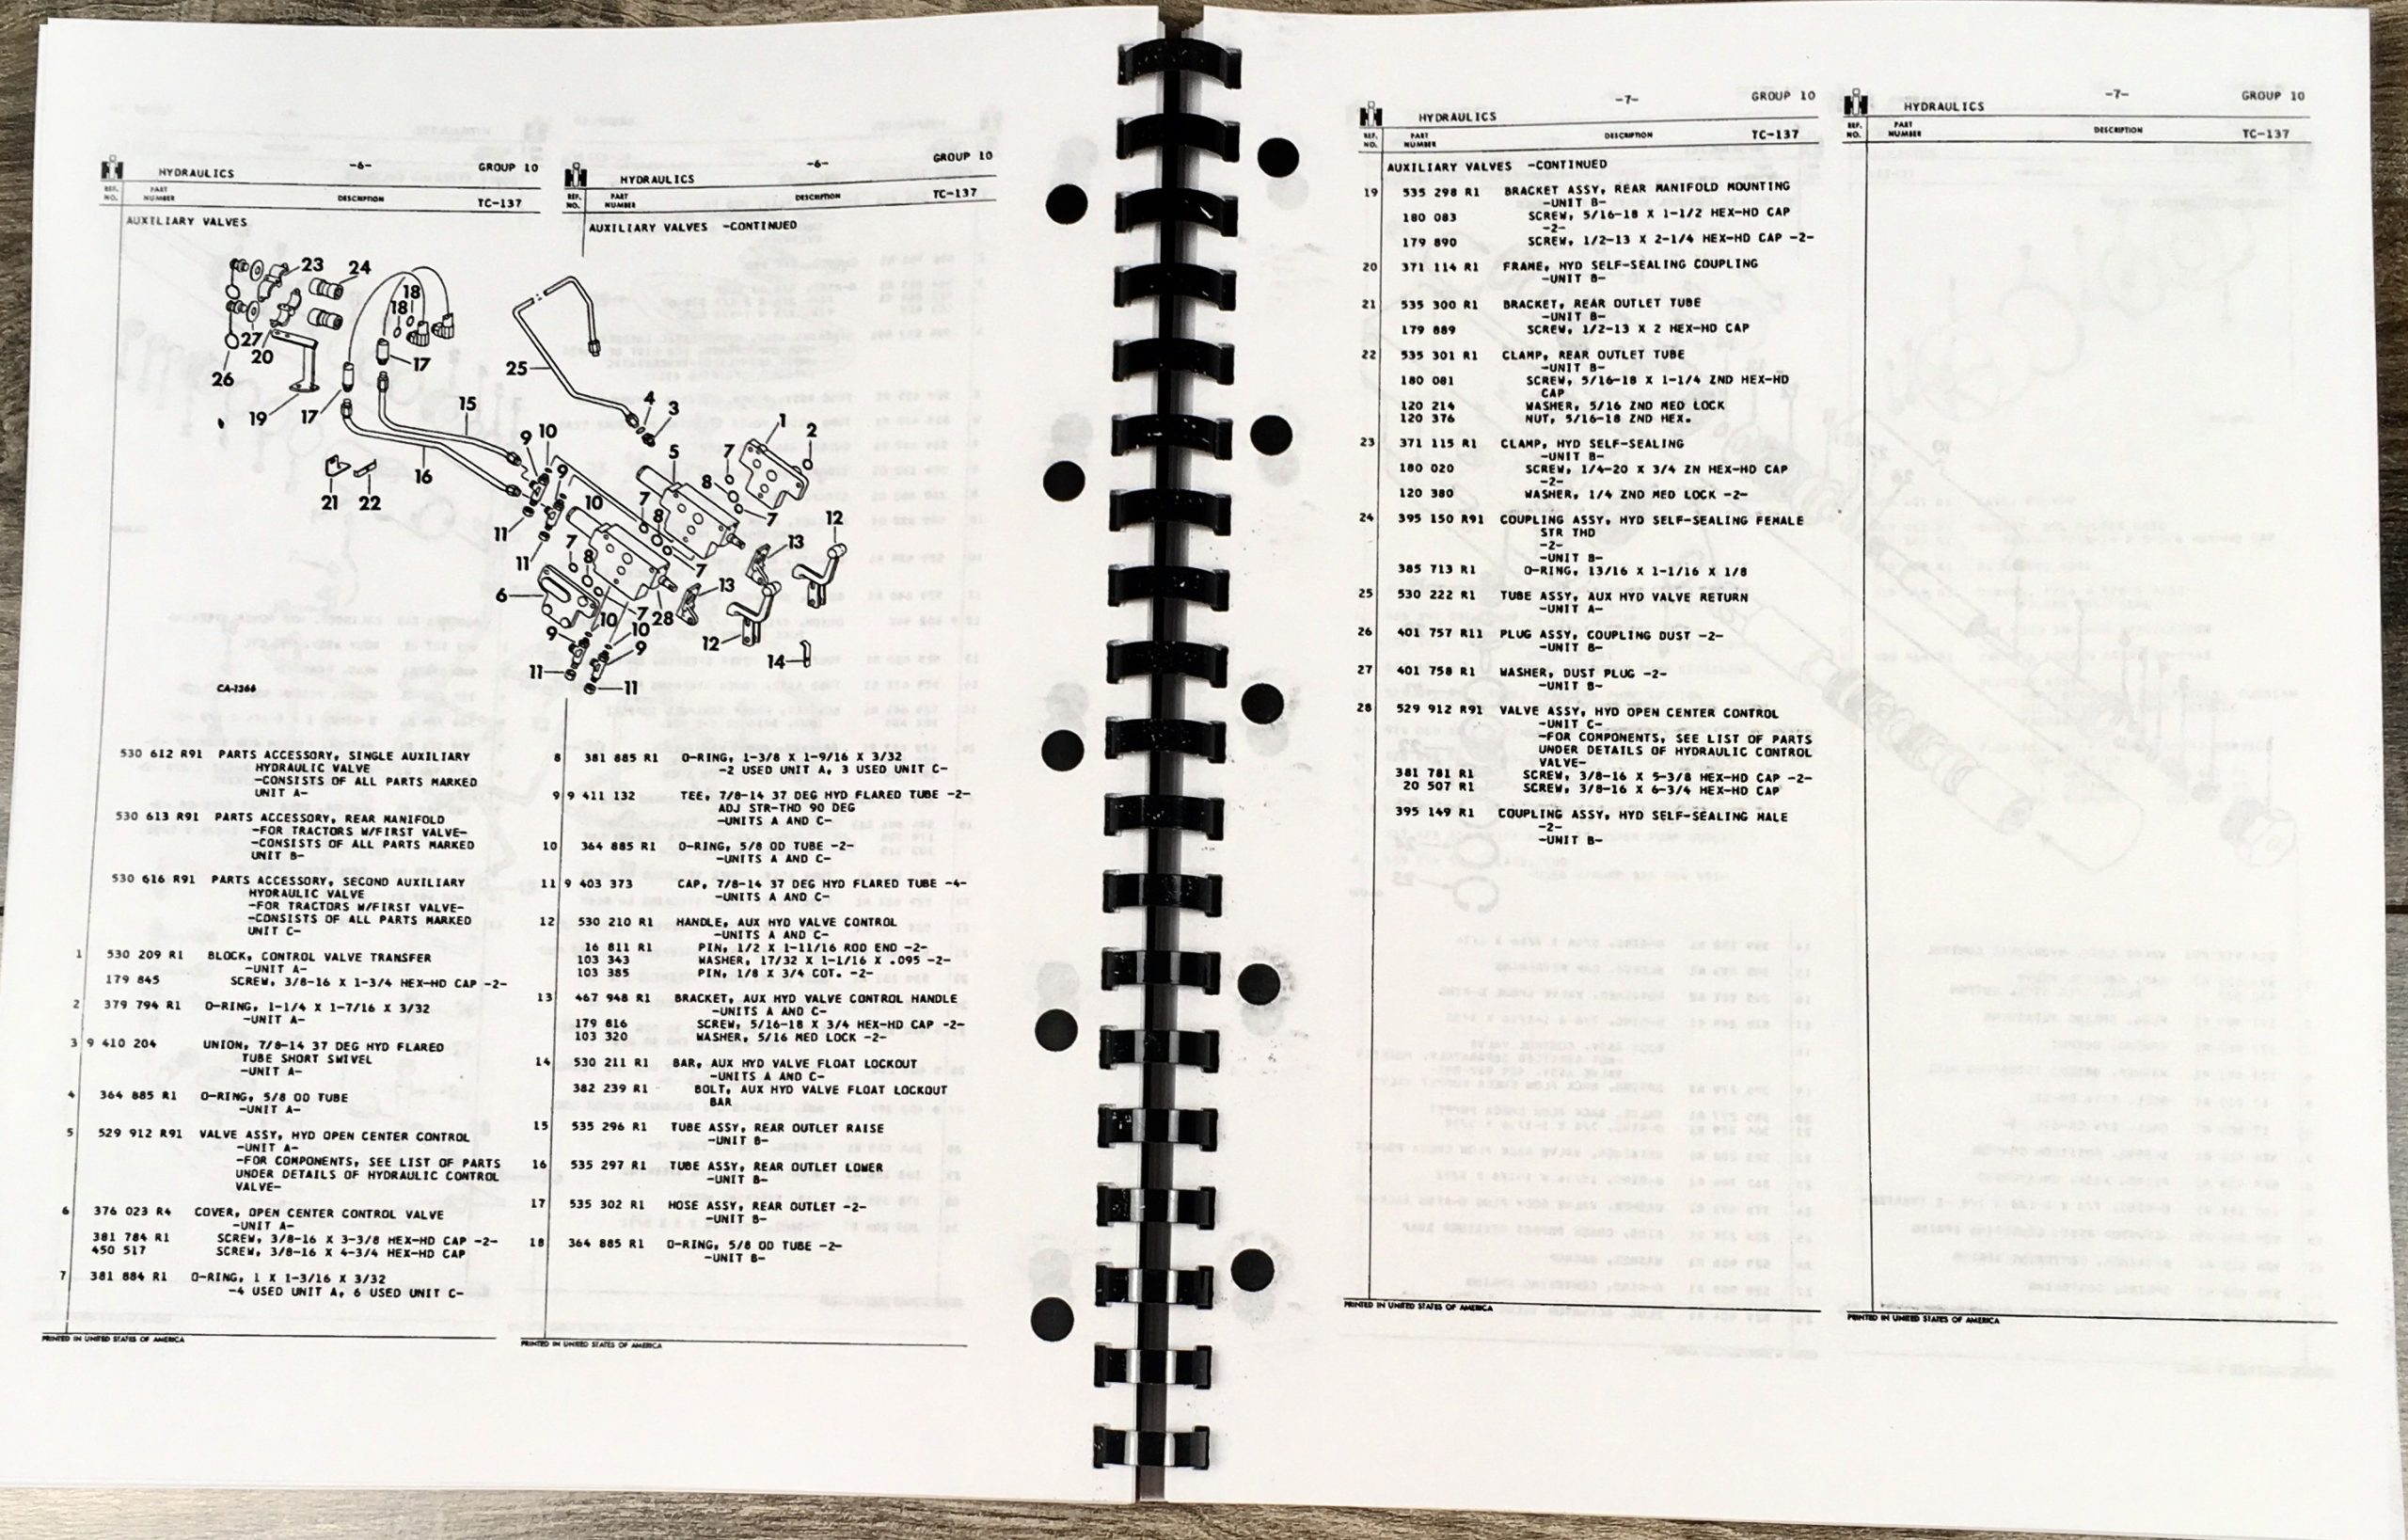 HYDRAULICS
-6-
GROUP 10
REF. NO.
PART NUMBER
DESCRIPTION
TC-137
AUXILIARY VALVES
23
24
18
18
27
20
26
17
19
17
15
16
21
22
9
10
9
10
11
11
CA-1366
530 612 R91 PARTS ACCESSORY, SINGLE AUXILIARY
HYDRAULIC VALVE
-CONSISTS OF ALL PARTS MARKED
UNIT A-
530 613 R91 PARTS ACCESSORY, REAR MANIFOLD
-FOR TRACTORS W/FIRST VALVE-
-CONSISTS OF ALL PARTS MARKED
UNIT B-
530 616 R91 PARTS ACCESSORY, SECOND AUXILIARY
HYDRAULIC VALVE
-FOR TRACTORS W/FIRST VALVE-
-CONSISTS OF ALL PARTS MARKED
UNIT C-
1 530 209 R1 BLOCK, CONTROL VALVE TRANSFER
-UNIT A-
179 845 SCREW, 3/8-16 X 1-3/4 HEX-HD CAP -2-
2 379 794 R1 O-RING, 1-1/4 X 1-7/16 X 3/32
-UNIT A-
3 9 410 204 UNION, 7/8-14 37 DEG HYD FLARED
TUBE SHORT SWIVEL
-UNIT A-
4 364 885 R1 O-RING, 5/8 OD TUBE
-UNIT A-
5 529 912 R91 VALVE ASSY, HYD OPEN CENTER CONTROL
-UNIT A-
-FOR COMPONENTS, SEE LIST OF PARTS
UNDER DETAILS OF HYDRAULIC CONTROL
VALVE-
6 376 023 R4 COVER, OPEN CENTER CONTROL VALVE
-UNIT A-
381 784 R1 SCREW, 3/8-16 X 3-3/8 HEX-HD CAP -2-
450 517 SCREW, 3/8-16 X 4-3/4 HEX-HD CAP
7 381 884 R1 O-RING, 1 X 1-3/16 X 3/32
-4 USED UNIT A, 6 USED UNIT C-
PRINTED IN UNITED STATES OF AMERICA
HYDRAULICS
-6-
GROUP 10
REF. NO.
PART NUMBER
DESCRIPTION
TC-137
AUXILIARY VALVES -CONTINUED
25
4
3
1
2
5
7
8
7
7
8
12
13
7
8
6
7
13
28
7
10
10
9
9
12
14
11
11
8 381 885 R1 O-RING, 1-3/8 X 1-9/16 X 3/32
-2 USED UNIT A, 3 USED UNIT C-
9 9 411 132 TEE, 7/8-14 37 DEG HYD FLARED TUBE -2-
ADJ STR-THD 90 DEG
-UNITS A AND C-
10 364 885 R1 O-RING, 5/8 OD TUBE -2-
-UNITS A AND C-
11 9 403 373 CAP, 7/8-14 37 DEG HYD FLARED TUBE -4-
-UNITS A AND C-
12 530 210 R1 HANDLE, AUX HYD VALVE CONTROL
-UNITS A AND C-
16 811 R1 PIN, 1/2 X 1-11/16 ROD END -2-
103 343 WASHER, 17/32 X 1-1/16 X .095 -2-
103 385 PIN, 1/8 X 3/4 COT. -2-
13 467 948 R1 BRACKET, AUX HYD VALVE CONTROL HANDLE
-UNITS A AND C-
179 816 SCREW, 5/16-18 X 3/4 HEX-HD CAP -2-
103 320 WASHER, 5/16 MED LOCK -2-
14 530 211 R1 BAR, AUX HYD VALVE FLOAT LOCKOUT
-UNITS A AND C-
382 239 R1 BOLT, AUX HYD VALVE FLOAT LOCKOUT
BAR
15 535 296 R1 TUBE ASSY, REAR OUTLET RAISE
-UNIT B-
16 535 297 R1 TUBE ASSY, REAR OUTLET LOWER
-UNIT B-
17 535 302 R1 HOSE ASSY, REAR OUTLET -2-
-UNIT B-
18 364 885 R1 O-RING, 5/8 OD TUBE -2-
-UNIT B-
PRINTED IN UNITED STATES OF AMERICA
HYDRAULICS
-7-
GROUP 10
REF. NO.
PART NUMBER
DESCRIPTION
TC-137
AUXILIARY VALVES -CONTINUED
19 535 298 R1 BRACKET ASSY, REAR MANIFOLD MOUNTING
-UNIT B-
180 083 SCREW, 5/16-18 X 1-1/2 HEX-HD CAP
-2-
179 890 SCREW, 1/2-13 X 2-1/4 HEX-HD CAP -2-
20 371 114 R1 FRAME, HYD SELF-SEALING COUPLING
-UNIT B-
21 535 300 R1 BRACKET, REAR OUTLET TUBE
-UNIT B-
179 889 SCREW, 1/2-13 X 2 HEX-HD CAP
22 535 301 R1 CLAMP, REAR OUTLET TUBE
-UNIT B-
180 081 SCREW, 5/16-18 X 1-1/4 ZND HEX-HD
CAP
120 214 WASHER, 5/16 ZND MED LOCK
120 376 NUT, 5/16-18 ZND HEX.
23 371 115 R1 CLAMP, HYD SELF-SEALING
-UNIT B-
180 020 SCREW, 1/4-20 X 3/4 ZN HEX-HD CAP
-2-
120 380 WASHER, 1/4 ZND MED LOCK -2-
24 395 150 R91 COUPLING ASSY, HYD SELF-SEALING FEMALE
STR THD
-2-
-UNIT B-
385 713 R1 O-RING, 13/16 X 1-1/16 X 1/8
25 530 222 R1 TUBE ASSY, AUX HYD VALVE RETURN
-UNIT A-
26 401 757 R11 PLUG ASSY, COUPLING DUST -2-
-UNIT B-
27 401 758 R1 WASHER, DUST PLUG -2-
-UNIT B-
28 529 912 R91 VALVE ASSY, HYD OPEN CENTER CONTROL
-UNIT C-
-FOR COMPONENTS, SEE LIST OF PARTS
UNDER DETAILS OF HYDRAULIC CONTROL
VALVE-
381 781 R1 SCREW, 3/8-16 X 5-3/8 HEX-HD CAP -2-
20 507 R1 SCREW, 3/8-16 X 6-3/4 HEX-HD CAP
395 149 R1 COUPLING ASSY, HYD SELF-SEALING MALE
-2-
-UNIT B-
PRINTED IN UNITED STATES OF AMERICA
HYDRAULICS
-7-
GROUP 10
REF. NO.
PART NUMBER
DESCRIPTION
TC-137
PRINTED IN UNITED STATES OF AMERICA